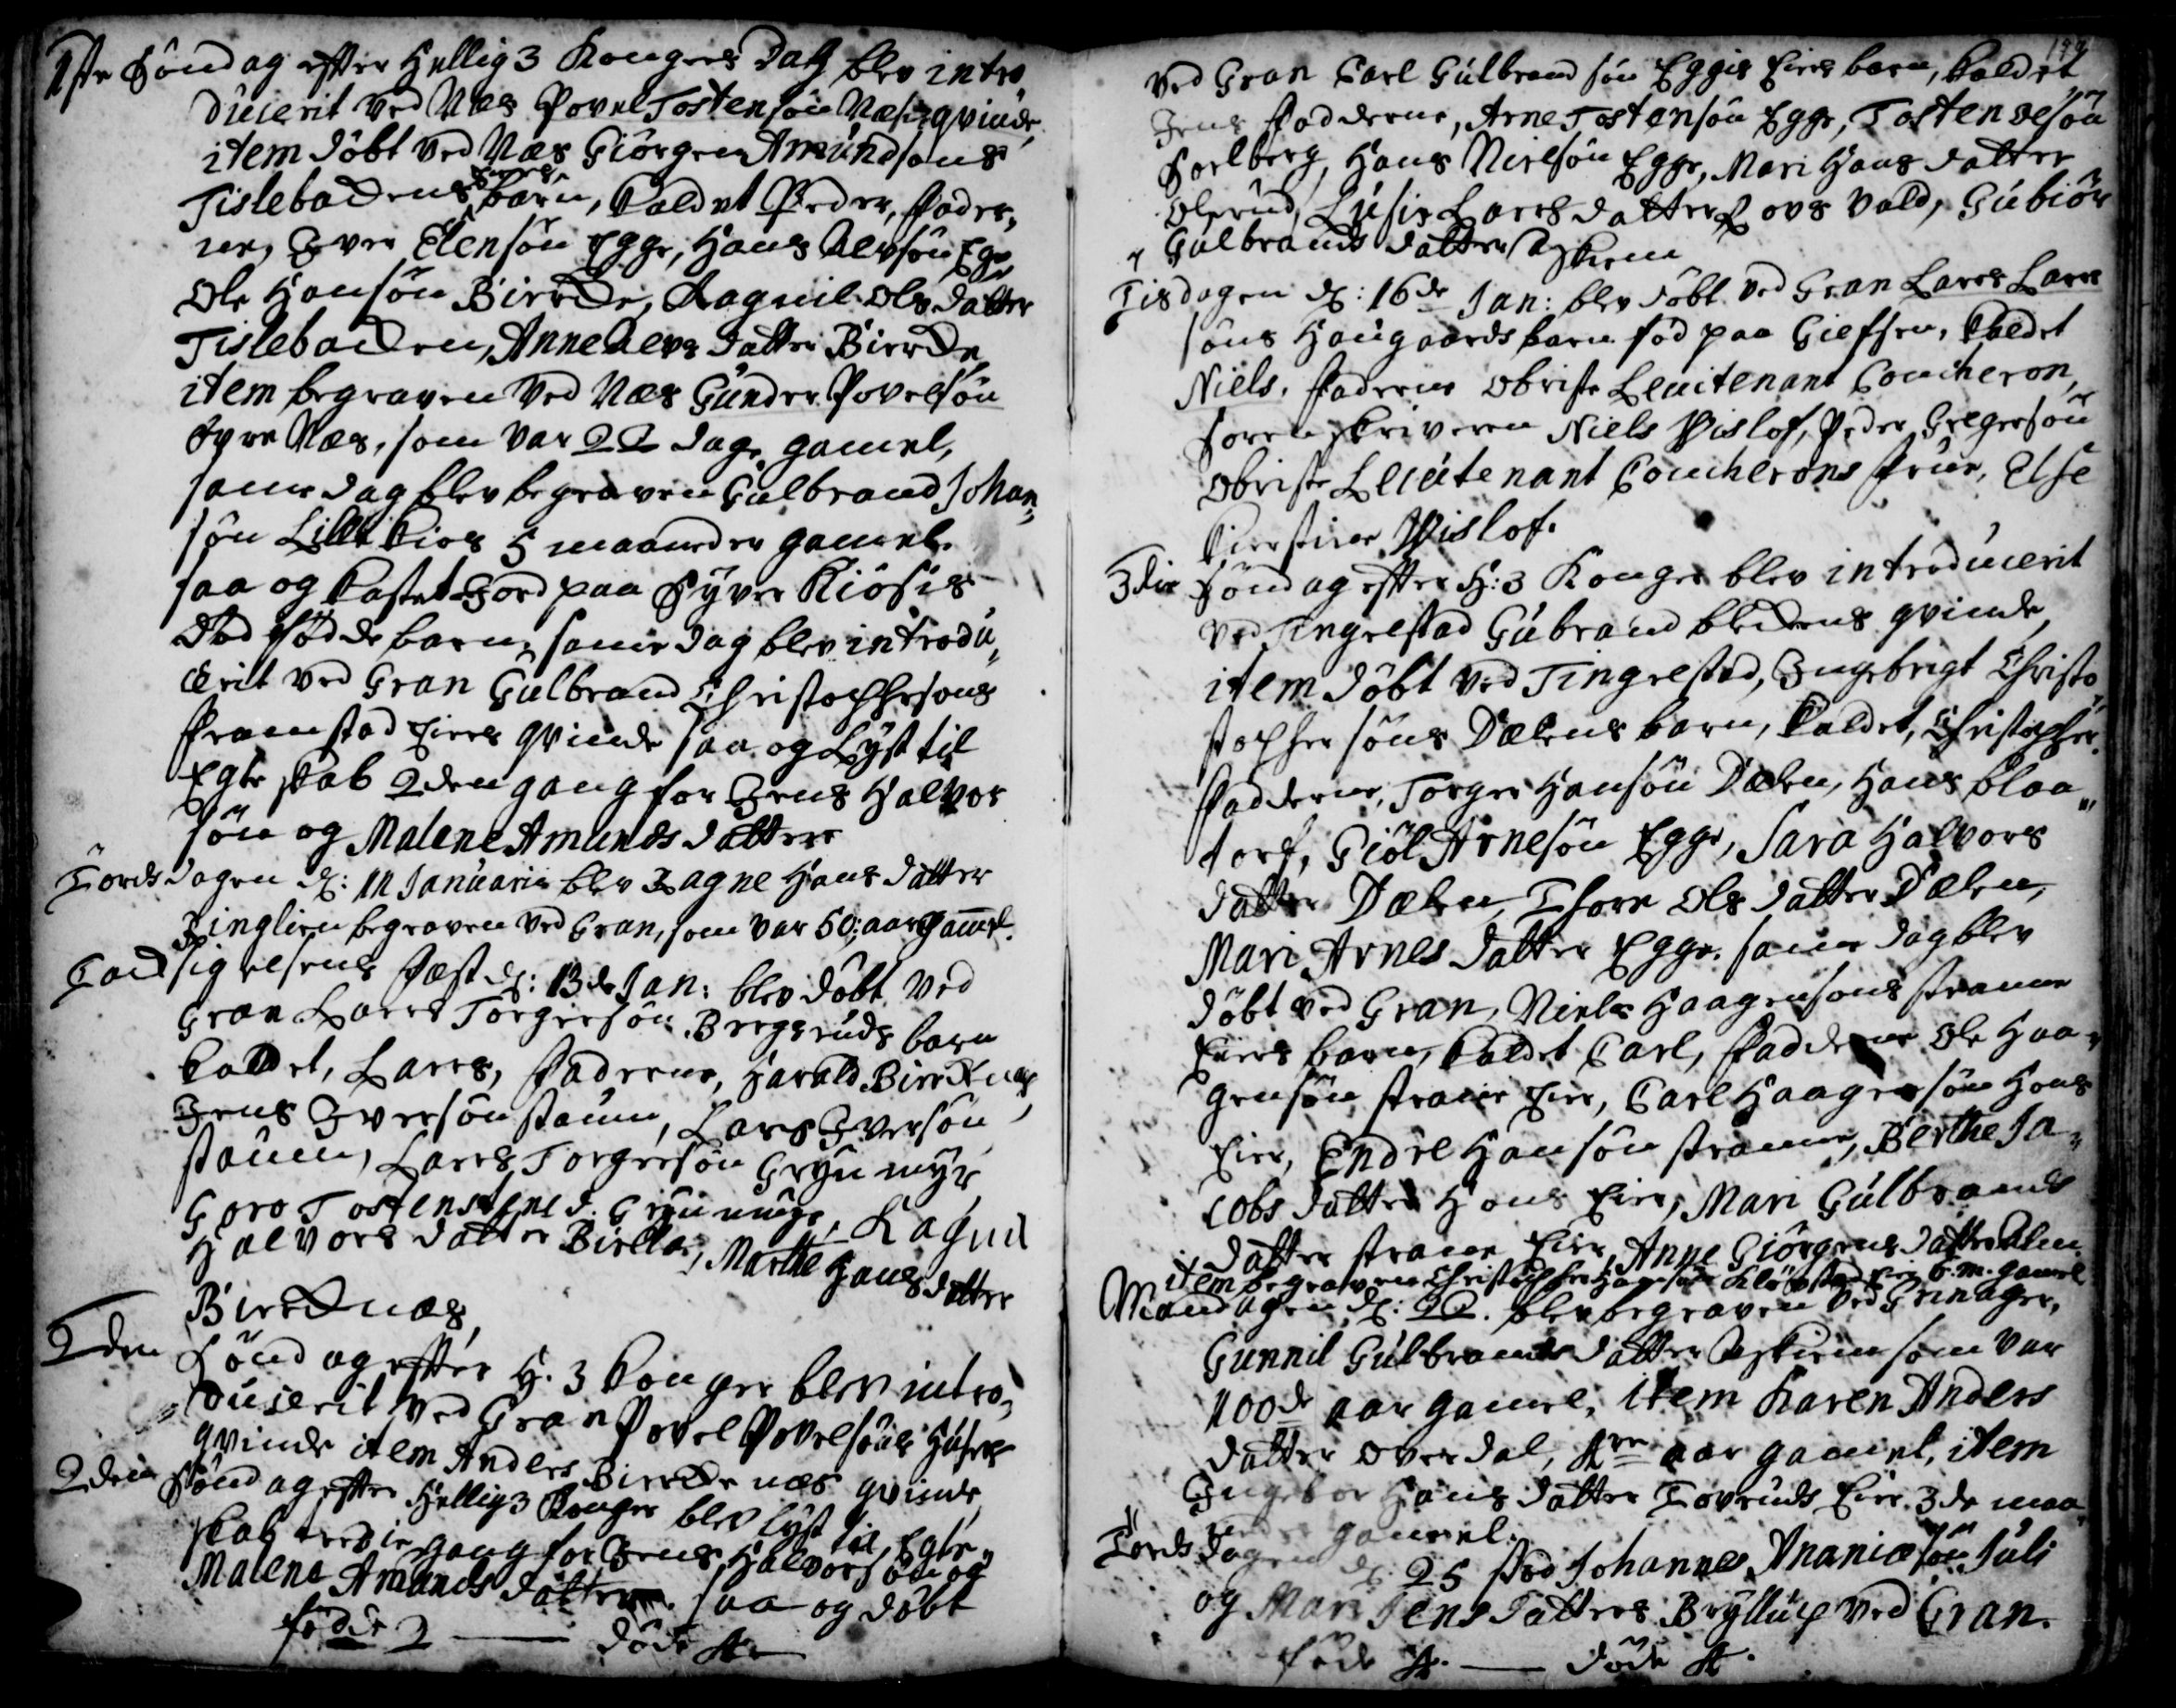 1ste Söndag effter Hellig 3 Kongers Dag blev intro,
ducerit ved Næs Povel Tostensön Næs qvinde,
item döbt ved Næs Giörgen Amundsöns
Tislebadens Eiers barn, kaldet Peder, fadder,
ne, Iver Elensön Egge, Hans Alvsön Ege
Ole Hansön Birrde, Ragnil Ols datter
Tislebaden, Anne datter Birrde
item begraven ved Næs Gunder Povelsön
Öyre Næs, som var 22 dage gamel,
same dag blev begraven Gulbrand Johan,
sön Lille Kios 5 maaneder gamel.
saa og kastet Jord paa Syver Kiösis
Död födde barn, same dag blev introdu,
cerit ved Gran Gulbrand Christophersöns
framstad Eiers qvinde saa og Lyst til
Egteskab 2den gang for Jens Halvor
sön og Malene Amunds datter
Tordsdagen d: 11 Januarii blev Ragne Hans datter
Tinglien begraven ved Gran, som var 50 aar gamel.
Tacksigelsens fæst d: 13de Jan: blev döbt ved
Gran Lars Torgersön Breggruds barn
kaldet, Lars, fadderne, Harald Birrdnæs,
Jens Iversön staum, Lars Iversön
staum, Lars Torgersön Gryn myr
Goro Tostenstens d. Gryn myr, Ragnil
Halvors datter Birlla, Marthe Hans datter
Birrdnæs,
2den Söndag effter H. 3 Konger blev intro,
ducerit ved Gran Povel Povelsöns Huses
qvinde item Anders Birrde næs qvinde
2den Söndag effter Hellig 3 Konger blev lyst til Egte,
skab tredie gang for Jens Halvorsön og
Malene Amunds datter. saa og döbt
födde 2 — döde 4
ved Gran Carl Gulbrandsön Eggis Eies barn, kaldet
Jens fadderne, Arne Tostensön Egge, Tosten Olsön
Sorlberg, Hans Nielsön Egge, Mari Hans datter
Olerud, Lusie Lars datter vold, Gubiör
Gulbrands datter Askim
Tisdagen d: 16de Jan: blev döbt ved Gran Lars Lars
söns Haugaards barn föd paa Gieffsen, kaldet
Niels. fadderne Obriste Leuitenant Coucheron,
Sorenskriveren Niels Wislof, Peder Gregersön
Obriste Leuitenant Coucherons frue, Else
Kierstine Wislof.
3die Söndag effter H: 3 Konger blev introducerit
ved Tingelstad Gubrand bledens qvinde,
item döbt ved Tingelstad, Ingebrigt Christo,
stopher söns Dælens barn, kaldet, Christopher.
fadderne, Torger Hansön Dælen, Hans blaa,,
torf, Giöl Arnesön Egge, Sara Halvors
datter Dælen, Thore Ols datter Dælen,
Mari Arnes datter Egge. same dag blev
döbt ved Gran, Niels Haagensöns framme
Eiers barn, kaldet Carl, fadderne Ole Haa,
gensön framme Eie, Carl Haagensön Hans
Eie, Endre Hansön framme, Berthe Ja,
cobs datter Hans Eie, Mari Gulbrands
datter framme Eie, Anne Giörgens datter Alm.
item begraven Christopher Hansön Kløvstad Eie 6. m. gamel
Mandagen d: 22. blev begraven ved Grinager,
Gunnil Gulbrands datter Askim som var
100de aar gamel, item Karen Anders
datter Overdal, 4re aar gamel, item
Ingebor Hans datter Tovruds Eie 3de maa,
neder gamel.
Tordsdagen d: 25 stod Johannes Ananiæsön Juls
og Mari Jens datters Bryllup ved Gran.
födde 4. — döde 4.